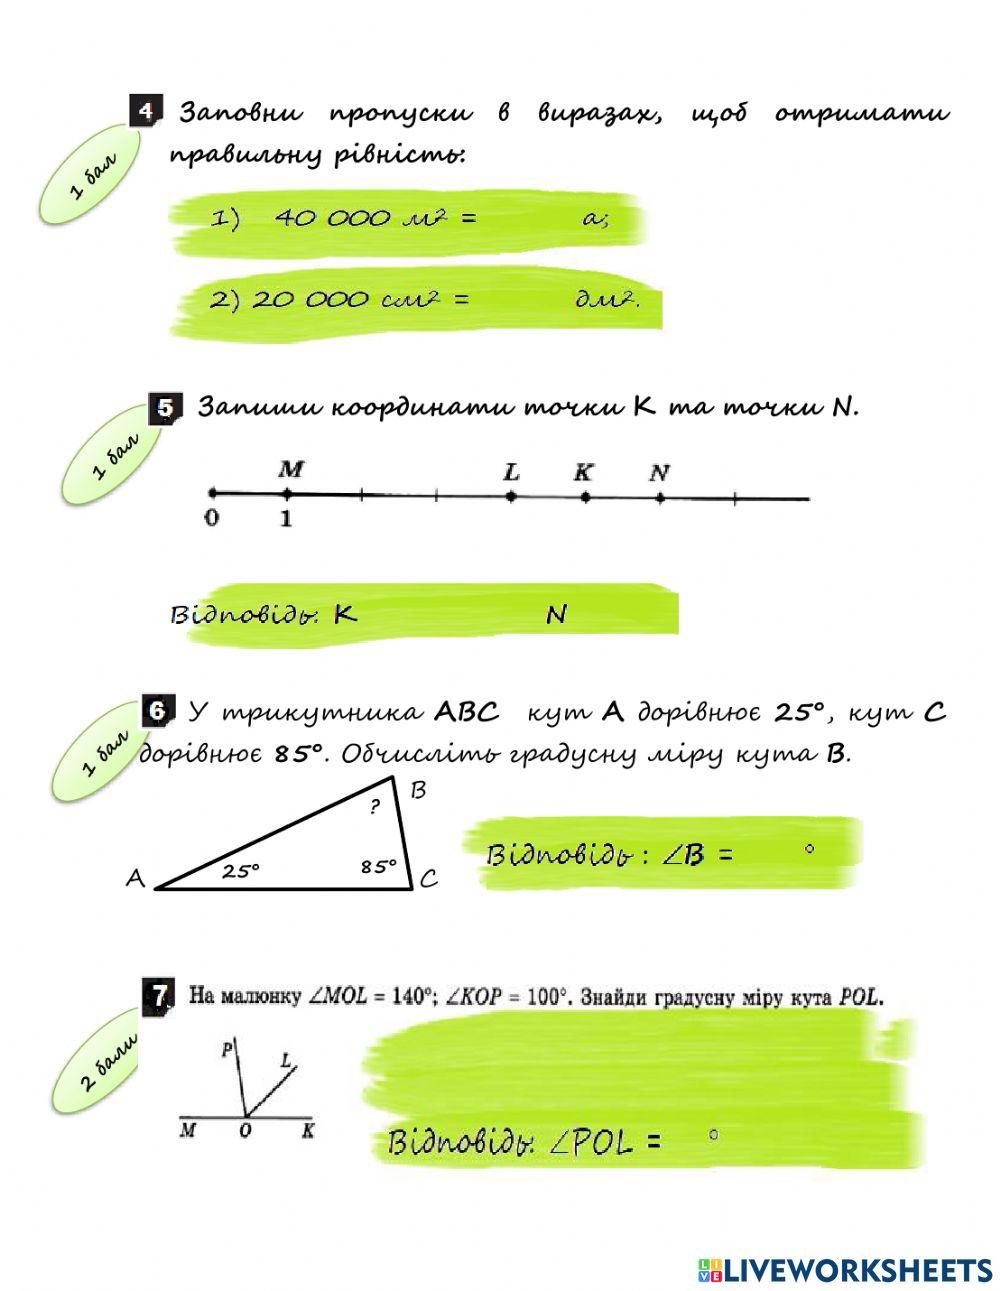 4 Заповни пропуски в виразах, щоб отримати
правильну рівність:
1 бал
1) 40 000 м² = а;
2) 20 000 см² = дм².
5 Запиши координати точки К та точки N.
1 бал
M L K N
0 1
Відповідь: К N
6 У трикутника АВС кут А дорівнює 25°, кут С
дорівнює 85°. Обчисліть градусну міру кута В.
1 бал
B
?
A 25° 85° C
Відповідь : ∠В = °
7 На малюнку ∠MOL = 140°; ∠KOP = 100°. Знайди градусну міру кута POL.
2 бали
P L
M O K
Відповідь: ∠POL = °
LIVEWORKSHEETS